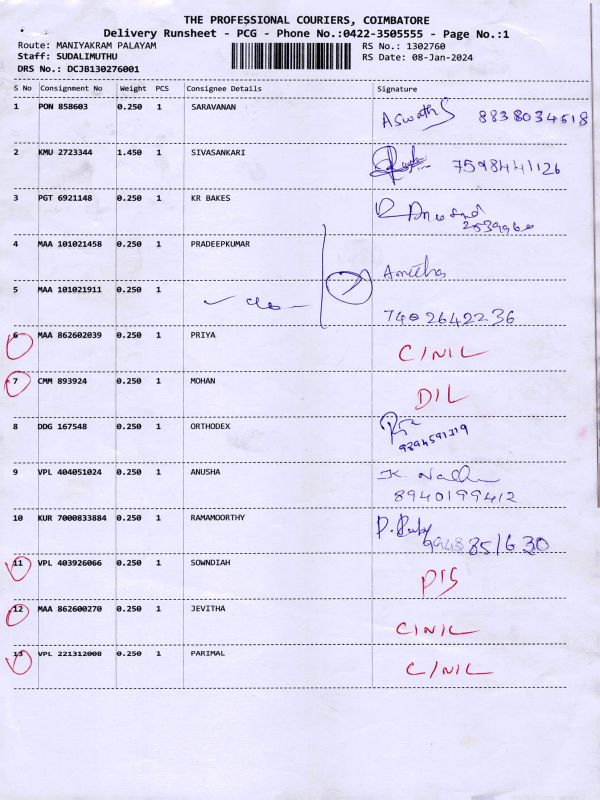 THE PROFESSIONAL COURIERS, COIMBATORE
Delivery Runsheet - PCG - Phone No.:0422-3505555 - Page No.:1
Route: MANIYAKRAM PALAYAM RS No.: 1302760
Staff: SUDALIMUTHU RS Date: 08-Jan-2024
DRS No.: DCJB130276001
S No Consignment No Weight PCS Consignee Details Signature
1 PON 858603 0.250 1 SARAVANAN Aswath S 8838034518
2 KMU 2723344 1.450 1 SIVASANKARI 7598441126
3 PGT 6921148 0.250 1 KR BAKES
2539960
4 MAA 101021458 0.250 1 PRADEEPKUMAR
5 MAA 101021911 0.250 1
7402642236
6 MAA 862602039 0.250 1 PRIYA C/NIL
7 CMM 893924 0.250 1 MOHAN D/L
8 DDG 167548 0.250 1 ORTHODEX
9394591319
9 VPL 404051024 0.250 1 ANUSHA
8940199412
10 KUR 7000833884 0.250 1 RAMAMOORTHY
9948851630
11 VPL 403926066 0.250 1 SOWNDIAH
12 MAA 862600270 0.250 1 JEVITHA C/NIL
13 VPL 221312008 0.250 1 PARIMAL C/NIL